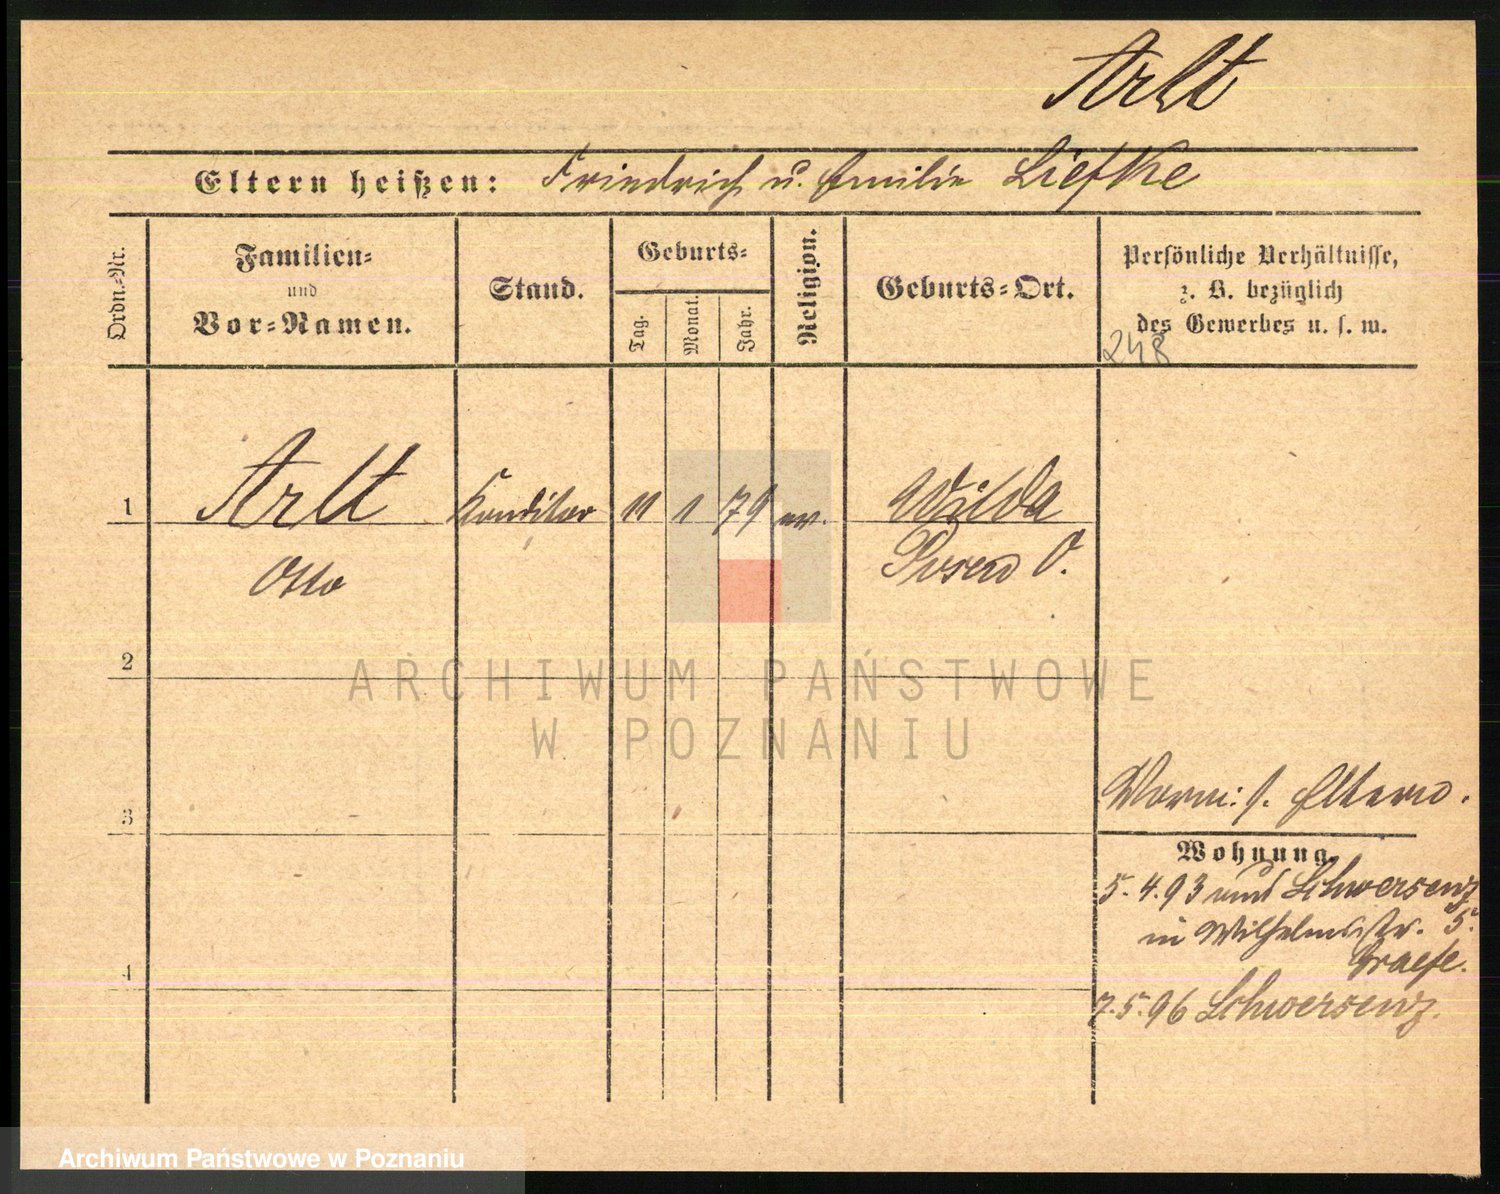 Arlt
Eltern heißen: Friedrich u. Emilie Liefke
Ordn.-Nr.
Familien-
und
Vor-Namen.
Stand.
Geburts-
Tag.
Monat.
Jahr.
Religion.
Geburts-Ort.
Persönliche Verhältnisse,
z. B. bezüglich
des Gewerbes u. s. w.
248
1 Arlt Konditor 11 1 79 ev. Wilda
Otto Posen O.
2
ARCHIWUM PAŃSTWOWE
W POZNANIU
3
Vorm: s. Eltern.
Wohnung.
5.4.93 aus Schwersenz
in Wilhelmstr. 5.
Graefe.
4
7.5.96 Schwersenz.
Archiwum Państwowe w Poznaniu